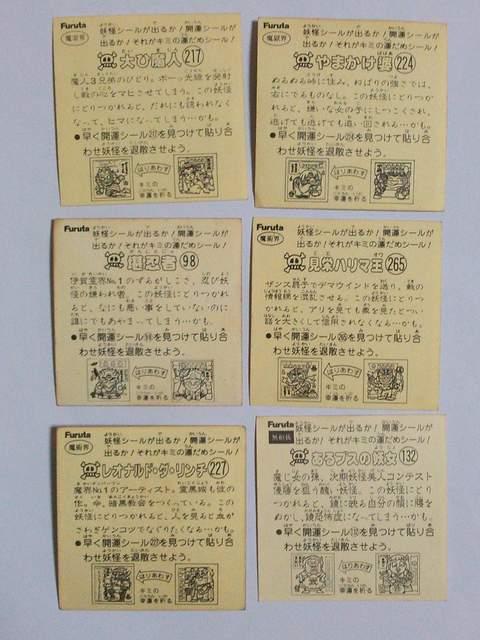 Furuta
魔獄界
妖怪シールが出るか！開運シールが
出るか！それがキミの運だめシール！
大ひ魔人 217
魔人3兄弟のびり。ボーッ光線を発射
し敵の心をマヒさせてしまう。この妖怪
にとりつかれると、だれにも誘われなく
なって、ヒマになってしまう…かも。
●早く開運シール217を見つけて貼り合
わせ妖怪を退散させよう。
はりあわす
キミの
幸運を祈る
Furuta
魔獄界
妖怪シールが出るか！開運シールが
出るか！それがキミの運だめシール！
やまかけ婆 224
ぬるぬる峠に住み、ねばりの強さでは、
右にでるものなし。この妖怪にとりつか
れると、嫌いな女の子にしつこくされ、
逃げても逃げても追い回される…かも。
●早く開運シール224を見つけて貼り合
わせ妖怪を退散させよう。
はりあわす
キミの
幸運を祈る
Furuta
妖怪シールが出るか！開運シールが
出るか！それがキミの運だめシール！
忍者 98
伊賀霊界No.1のずるがしこさ、忍び妖
怪の嫌われ者。この妖怪にとりつかれ
ると、なにも悪い事をしていないのに
誰にでもあやまってしまう…かも。
●早く開運シール98を見つけて貼り合
わせ妖怪を退散させよう。
はりあわす
キミの
幸運を祈る
Furuta
魔術界
妖怪シールが出るか！開運シールが
出るか！それがキミの運だめシール！
見栄ハリマ王 265
ザンス扇子でデマウインドを送り、敵の
情報網を混乱させる。この妖怪にとりつ
かれると、アリを見ても象を見たとつい
話を大きくして信用されなくなる…かも。
●早く開運シール265を見つけて貼り合
わせ妖怪を退散させよう。
はりあわす
キミの
幸運を祈る
Furuta
魔術界
妖怪シールが出るか！開運シールが
出るか！それがキミの運だめシール！
レオナルド・ダ・リンチ 227
魔界No.1のアーティスト。霊黒嬢も彼の
作。今、暗黒教会をつくっている。この
妖怪にとりつかれると、人を見ると血が
さわぎゲンコツでなぐりたくなる…かも。
●早く開運シール227を見つけて貼り合
わせ妖怪を退散させよう。
はりあわす
キミの
幸運を祈る
Furuta
無組族
妖怪シールが出るか！開運シールが
出るか！それがキミの運だめシール！
あるプスの妖女 132
魔じ女の孫、次期妖怪美人コンテスト
優勝を狙う醜い妖怪。この妖怪にとり
つかれると、鏡に映る自分の顔に勝を
ぬかし、鏡恐怖症になってしまう…かも。
●早く開運シール132を見つけて貼り合
わせ妖怪を退散させよう。
はりあわす
キミの
幸運を祈る